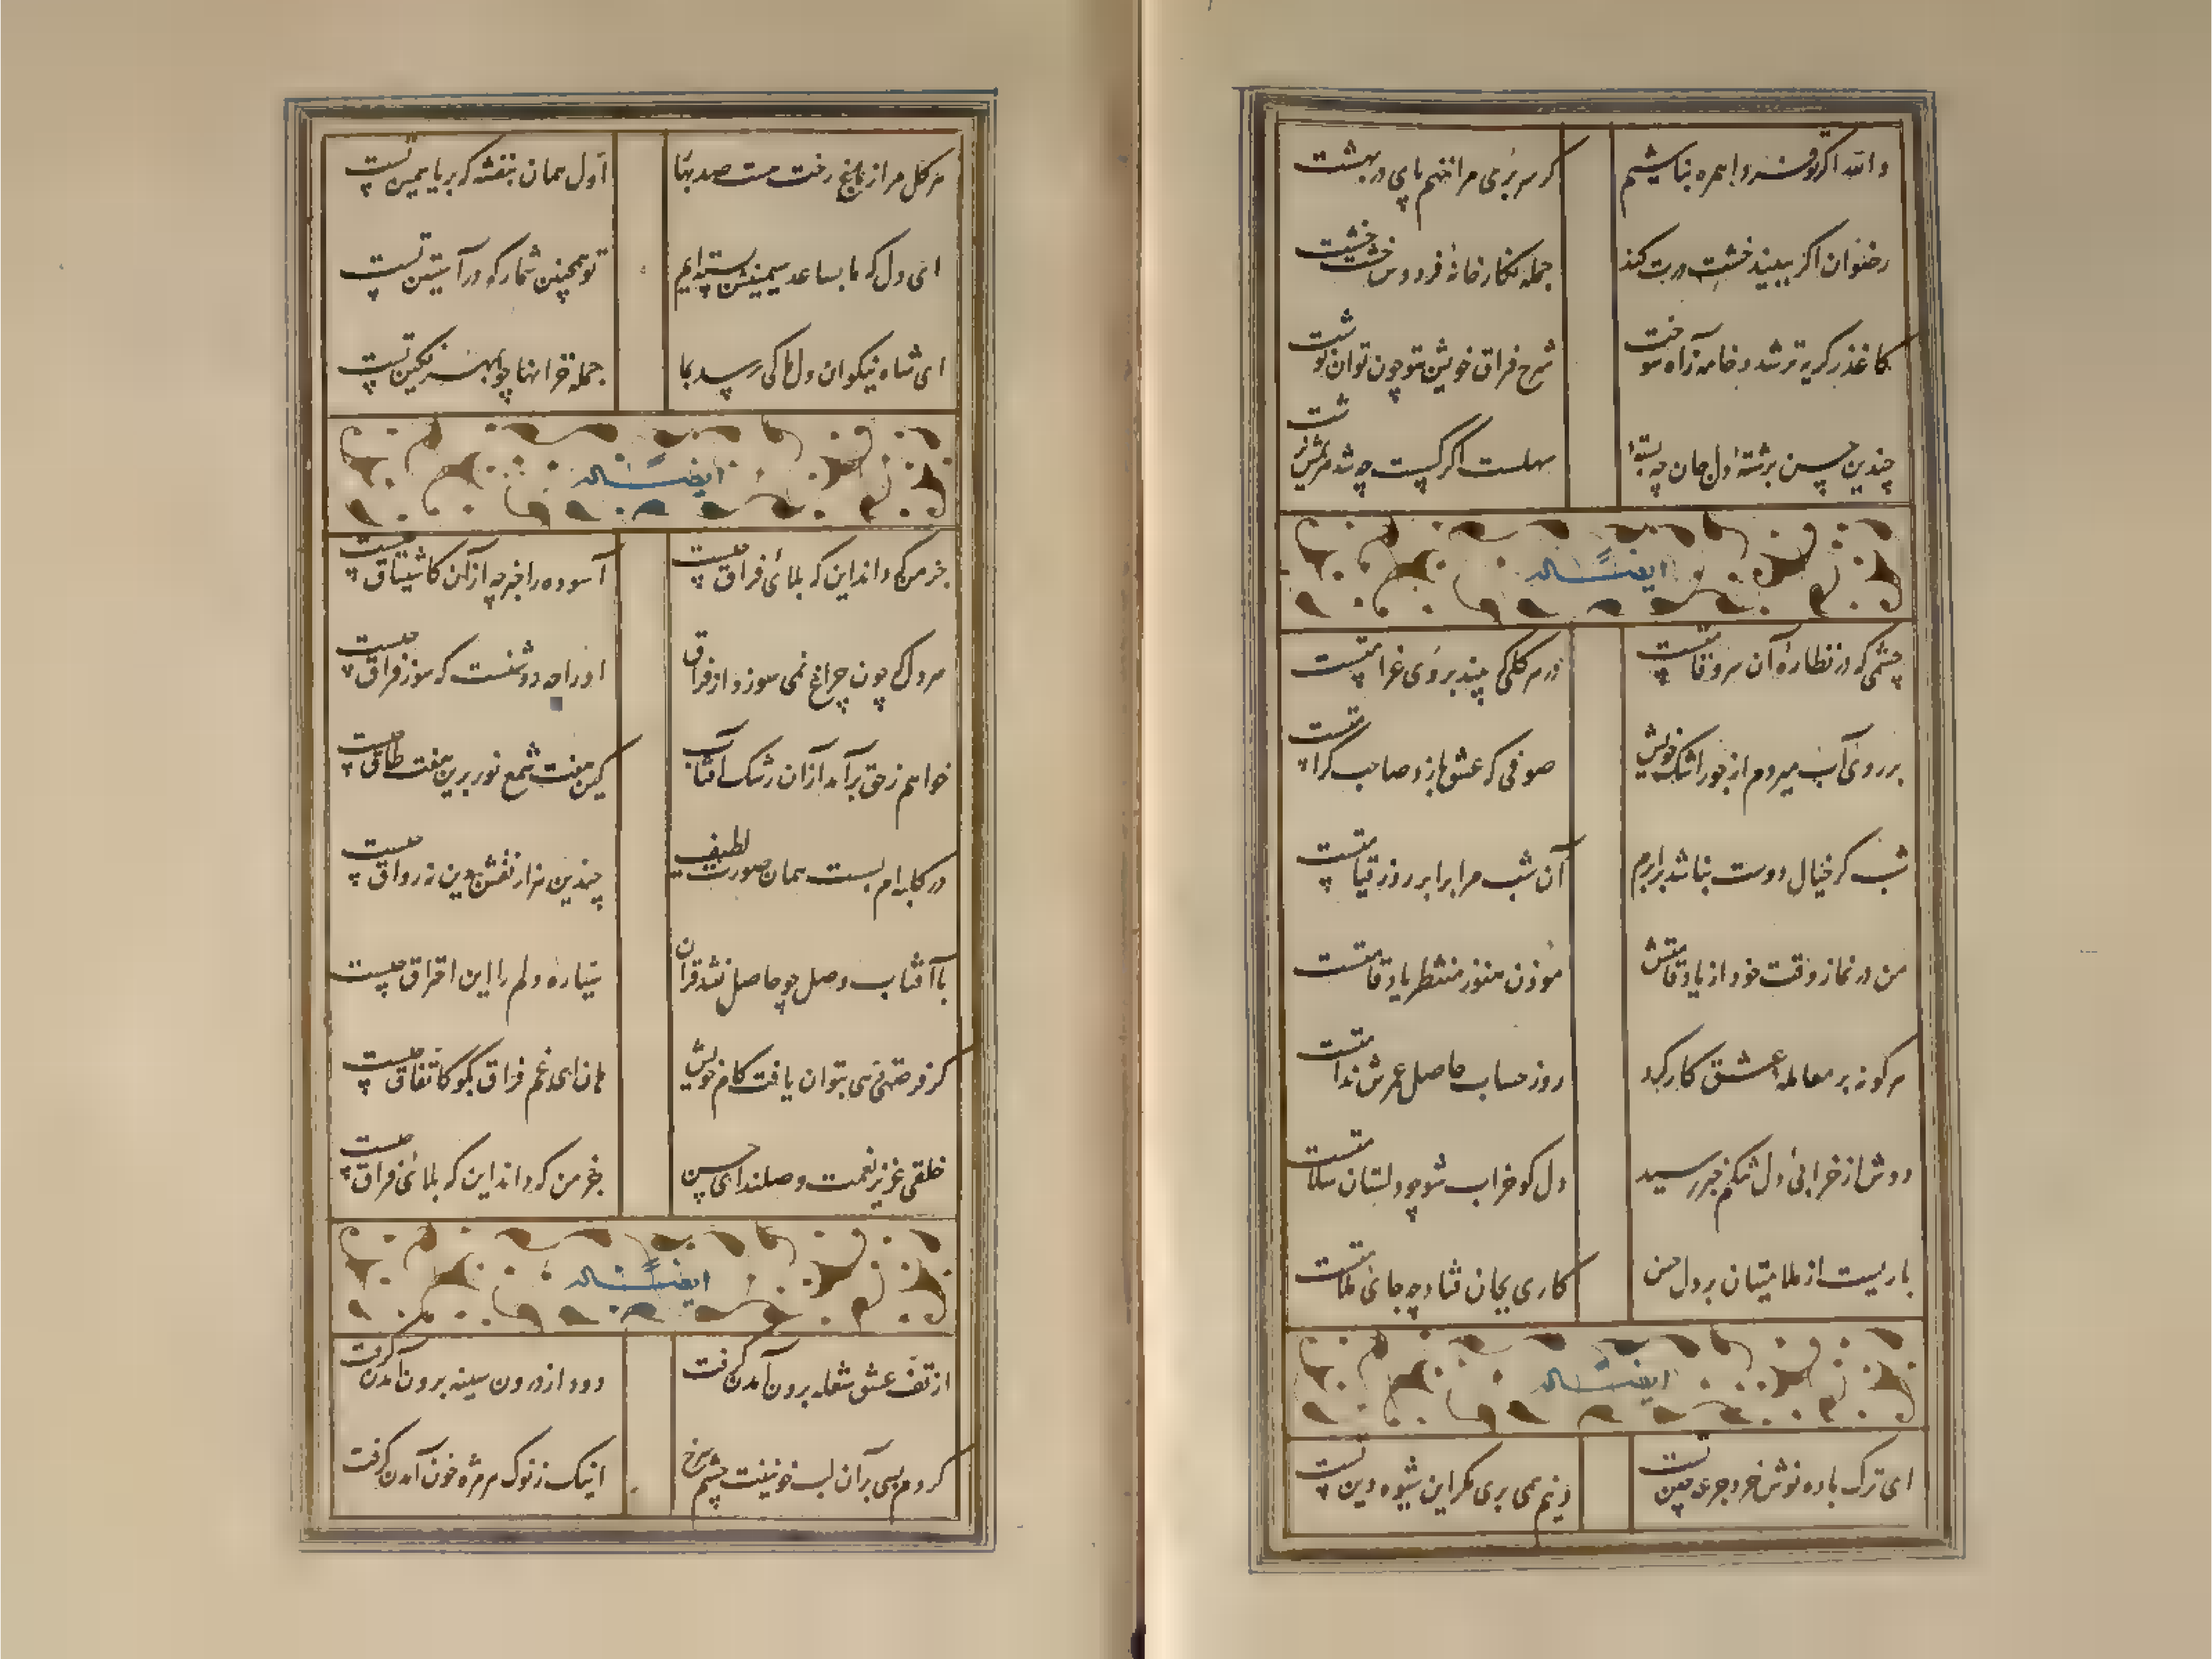 والله اگر تو همره ما نباشیم
گر سر بری مرا ننهم پای در بهشت
رضوان اگر ببیند خشت درت کند
جمله نگارخانهٔ فردوس خشت خشت
کاغذ ز گریه تر شد و خامه ز آه سوخت
شرح فراق خویش بتو چون توان نوشت
چندین حسن برشتهٔ دل جان چه بستهٔ
سهلست اگر گسست چه شد
ایضاً له
چشمی که در نظارهٔ آن سرو قامتست
در هر گلی که بیند بروی غرامتست
بر روی آب میروم از جور اشک خویش
صوفی که عشق بازد صاحب کرامتست
شب کر خیال دوست نباشد برابرم
آن شب مرا برابر روز قیامتست
من در نماز وقت خود از یاد قامتش
موذن هنوز منتظر یاد قامتست
هر کو نه بر معاملهٔ عشق کار کرد
روز حساب حاصل عمرش ندامتست
دوش از خرابی دل تنگم خبر رسید
دل کو خراب شو چو دلستان سلامتست
باریست از ملامتیان بر دل حسن
کاری بجان فتاد چه جای ملامتست
ایضاً له
ای ترک باده نوش خرد جرعه چین تست
دینم همی بری مگر این شیوه دین تست
هر گل مرا ز باغ رخت هست صد بها
اول همان بنفشه که بر یاسمین تست
ای دل که ما بساعد سیمینش بسته‌ایم
تو همچنین شمار که در آستین تست
ای شاه نیکوان دل ما کی رسد بما
جمله خزانها چو بمهر نگین تست
ایضاً له
جز من که داند این که بلای فراق چیست
آسوده را خبر چه از آن کاشتیاق چیست
هر دل که چون چراغ نمی سوزد از فراق
او را چه روشنست که سوز فراق چیست
خواهم ز حق برآمد از آن رشک آفتاب
کین هفت شمع نور برین هفت طاق چیست
در کلبه‌ام بست همان صورت لطیف
چندین هزار نقش درین نه رواق چیست
با آفتاب وصل چو حاصل نشد قران
سیاره دلم را این احتراق چیست
گر فرصتی همی بتوان یافت کام خویش
هان ای غم فراق بگو کاتفاق چیست
خلقی عزیز نعمت وصلند ای حسن
جز من که داند این که بلای فراق چیست
ایضاً له
از تف عشق شعله برون آمدن گرفت
دود از درون سینه برون آمدن گرفت
کردم بسی بر آن لب خونینت چشم سرخ
اینک ز نوک هر مژه خون آمدن گرفت